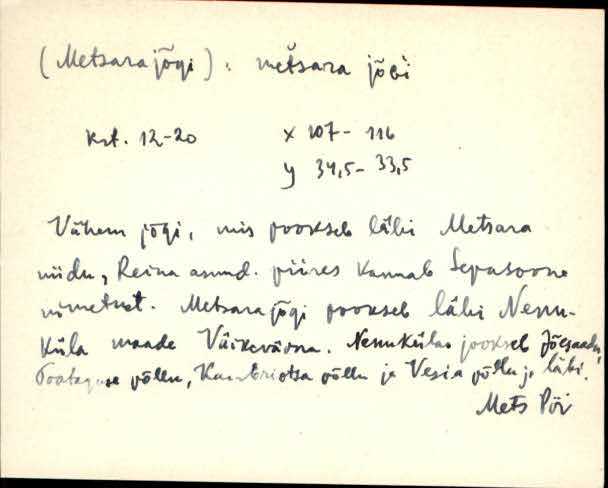 (Metsara jõgi). mètsara jõGi
krt. 12-20 x 107- 116
y 34,5- 33,5
Vähem jõgi, mis jookseb läbi Metsara
niidu, Reina asund. piires kannab Sepasoone
nimetust. Metsara jõgi jookseb läbi Nenu-
küla maade Väikeväona. Nenukülas jookseb Jõesaadu,
põllu, Kambriotsa põllu ja Vesia põllu j. läbi.
Mets